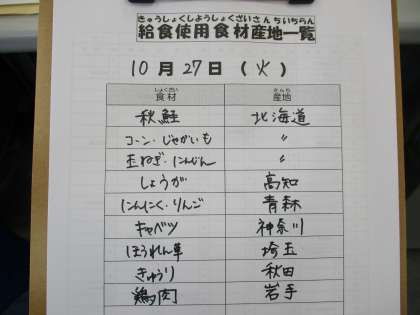 きゅうしょくしようしょくざいさんちいちらん
給食使用食材産地一覧
10月27日(火)
しょくざい さんち
食材 産地
秋鮭 北海道
コーン・じゃがいも 〃
玉ねぎ・にんじん 〃
しょうが 高知
にんにく・りんご 青森
キャベツ 神奈川
ほうれん草 埼玉
きゅうり 秋田
鶏肉 岩手